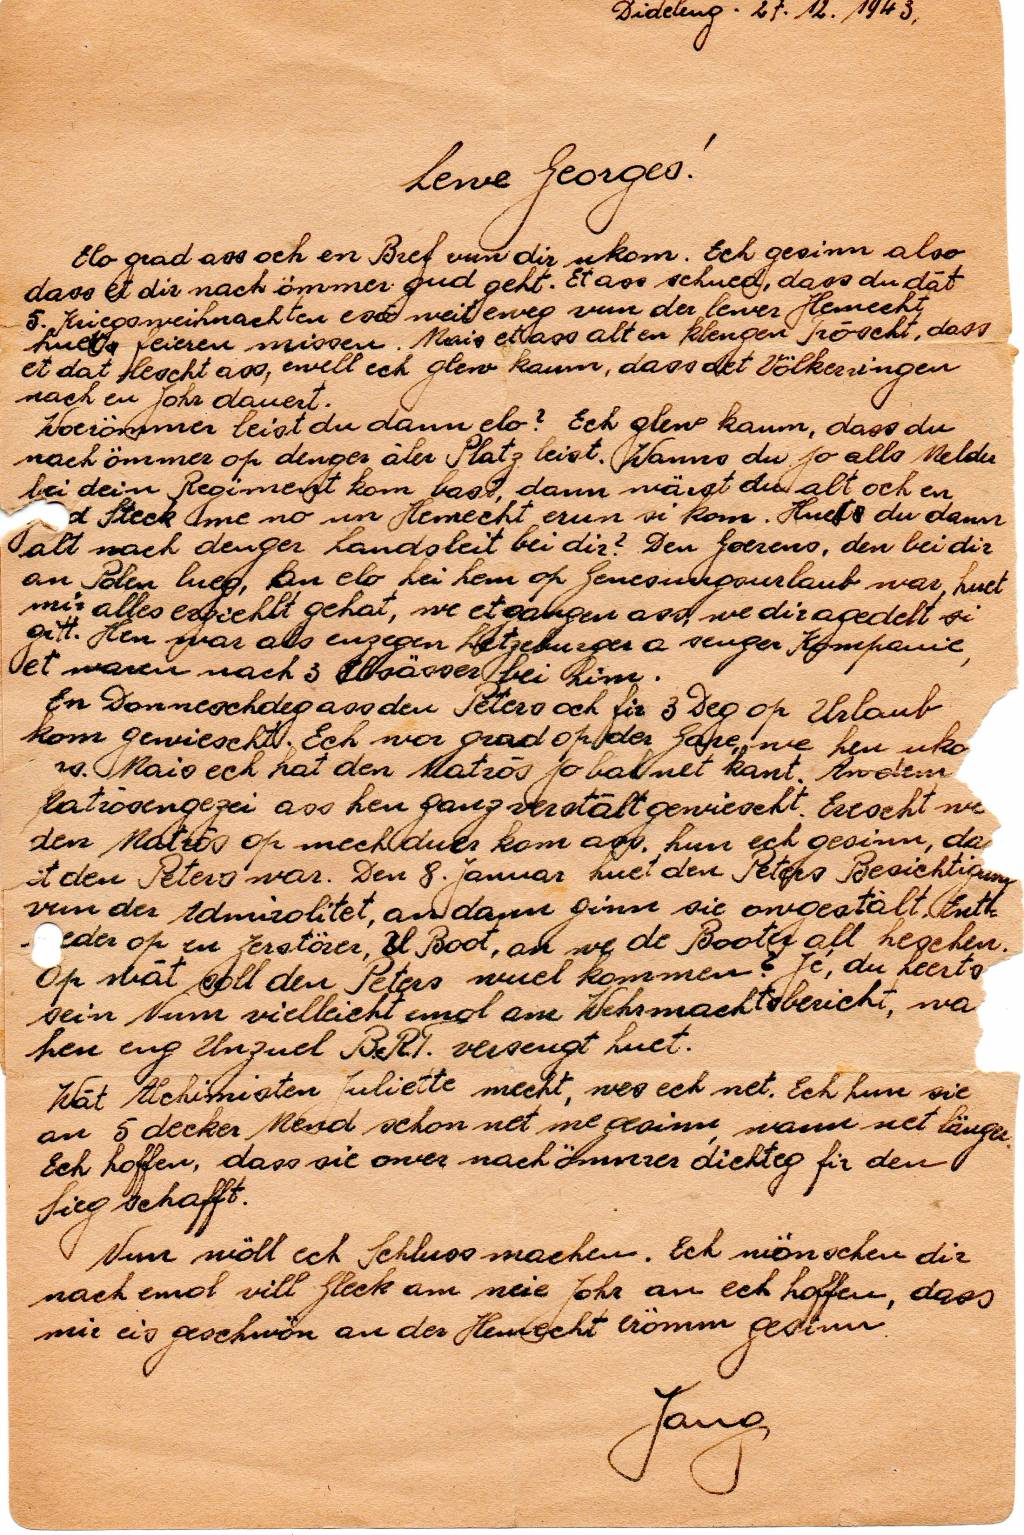 Dideleng. 27. 12. 1943.
Lewe Georges!
Elo grad ass och en Bref vun dir ukom. Ech gesinn also
dass et dir nach ömmer gud geht. Et ass schued, dass du dât
5. Kriegsweihnachten eso weit eweg vun der lewer Hemecht
hues feieren missen. Mais et ass alt en klengen Tröscht, dass
et dat lescht ass, well ech glew kaum, dass det Völkerringen
nach en Johr dauert.
Woerömmer leist du dann elo? Ech glew kaum, dass du
nach ömmer op denger âler Platz leist. Wanns du jo alls Melder
bei dein Regiment kom bass, dann wärst du alt och en
d Steck me no un Hemecht erun si kom. Hues du dann
alt nach denger Landsleit bei dir? Den Goerens, den bei dir
an Polen lueg, an elo hei hem op Genesungsurlaub war, huet
mir alles erziehlt gehat, we et gangen ass, we dir agedelt si
gitt. Hen war als enzegen Letzeburger a senger Kompanie,
et waren nach 3 Elsässer bei him.
En Donneschdeg ass den Peters och fir 3 Deg op Urlaub
kom gewiescht. Ech wor grad op der Gare, we hen uko
Mais ech hat den Matrös jo bal net kant. An dem
Matrosengezei ass hen ganz verstâlt gewiescht. Erescht we
den Matrös op mech duer kom ass, hun ech gesinn, da
et den Peters war. Den 8. Januar huet den Peters Besichtigung
vun der Admirolitet, an dann ginn sie ongestâlt. Entw
eder op en Zerstörer, U Boot, an we de Booter all heschen.
Op wât soll den Peters wuel kommen? Jé, du heerts
sein Num vielleicht emol am Wehrmachtsbericht, wa
hen eng Unzuel B.R.T. versengt huet.
Wât Alchimisten Juliette mecht, wes ech net. Ech hun sie
an 5 decker Mend schon net me gesinn, wann net länger.
Ech hoffen, dass sie ower nach ömmer dichteg fir den
Sieg schafft.
Nun wöll ech Schluss machen. Ech wönschen dir
nach emol vill Gleck am neie Johr an ech hoffen, dass
mir eis geschwön an der Hemecht erömm gesinn
Jang